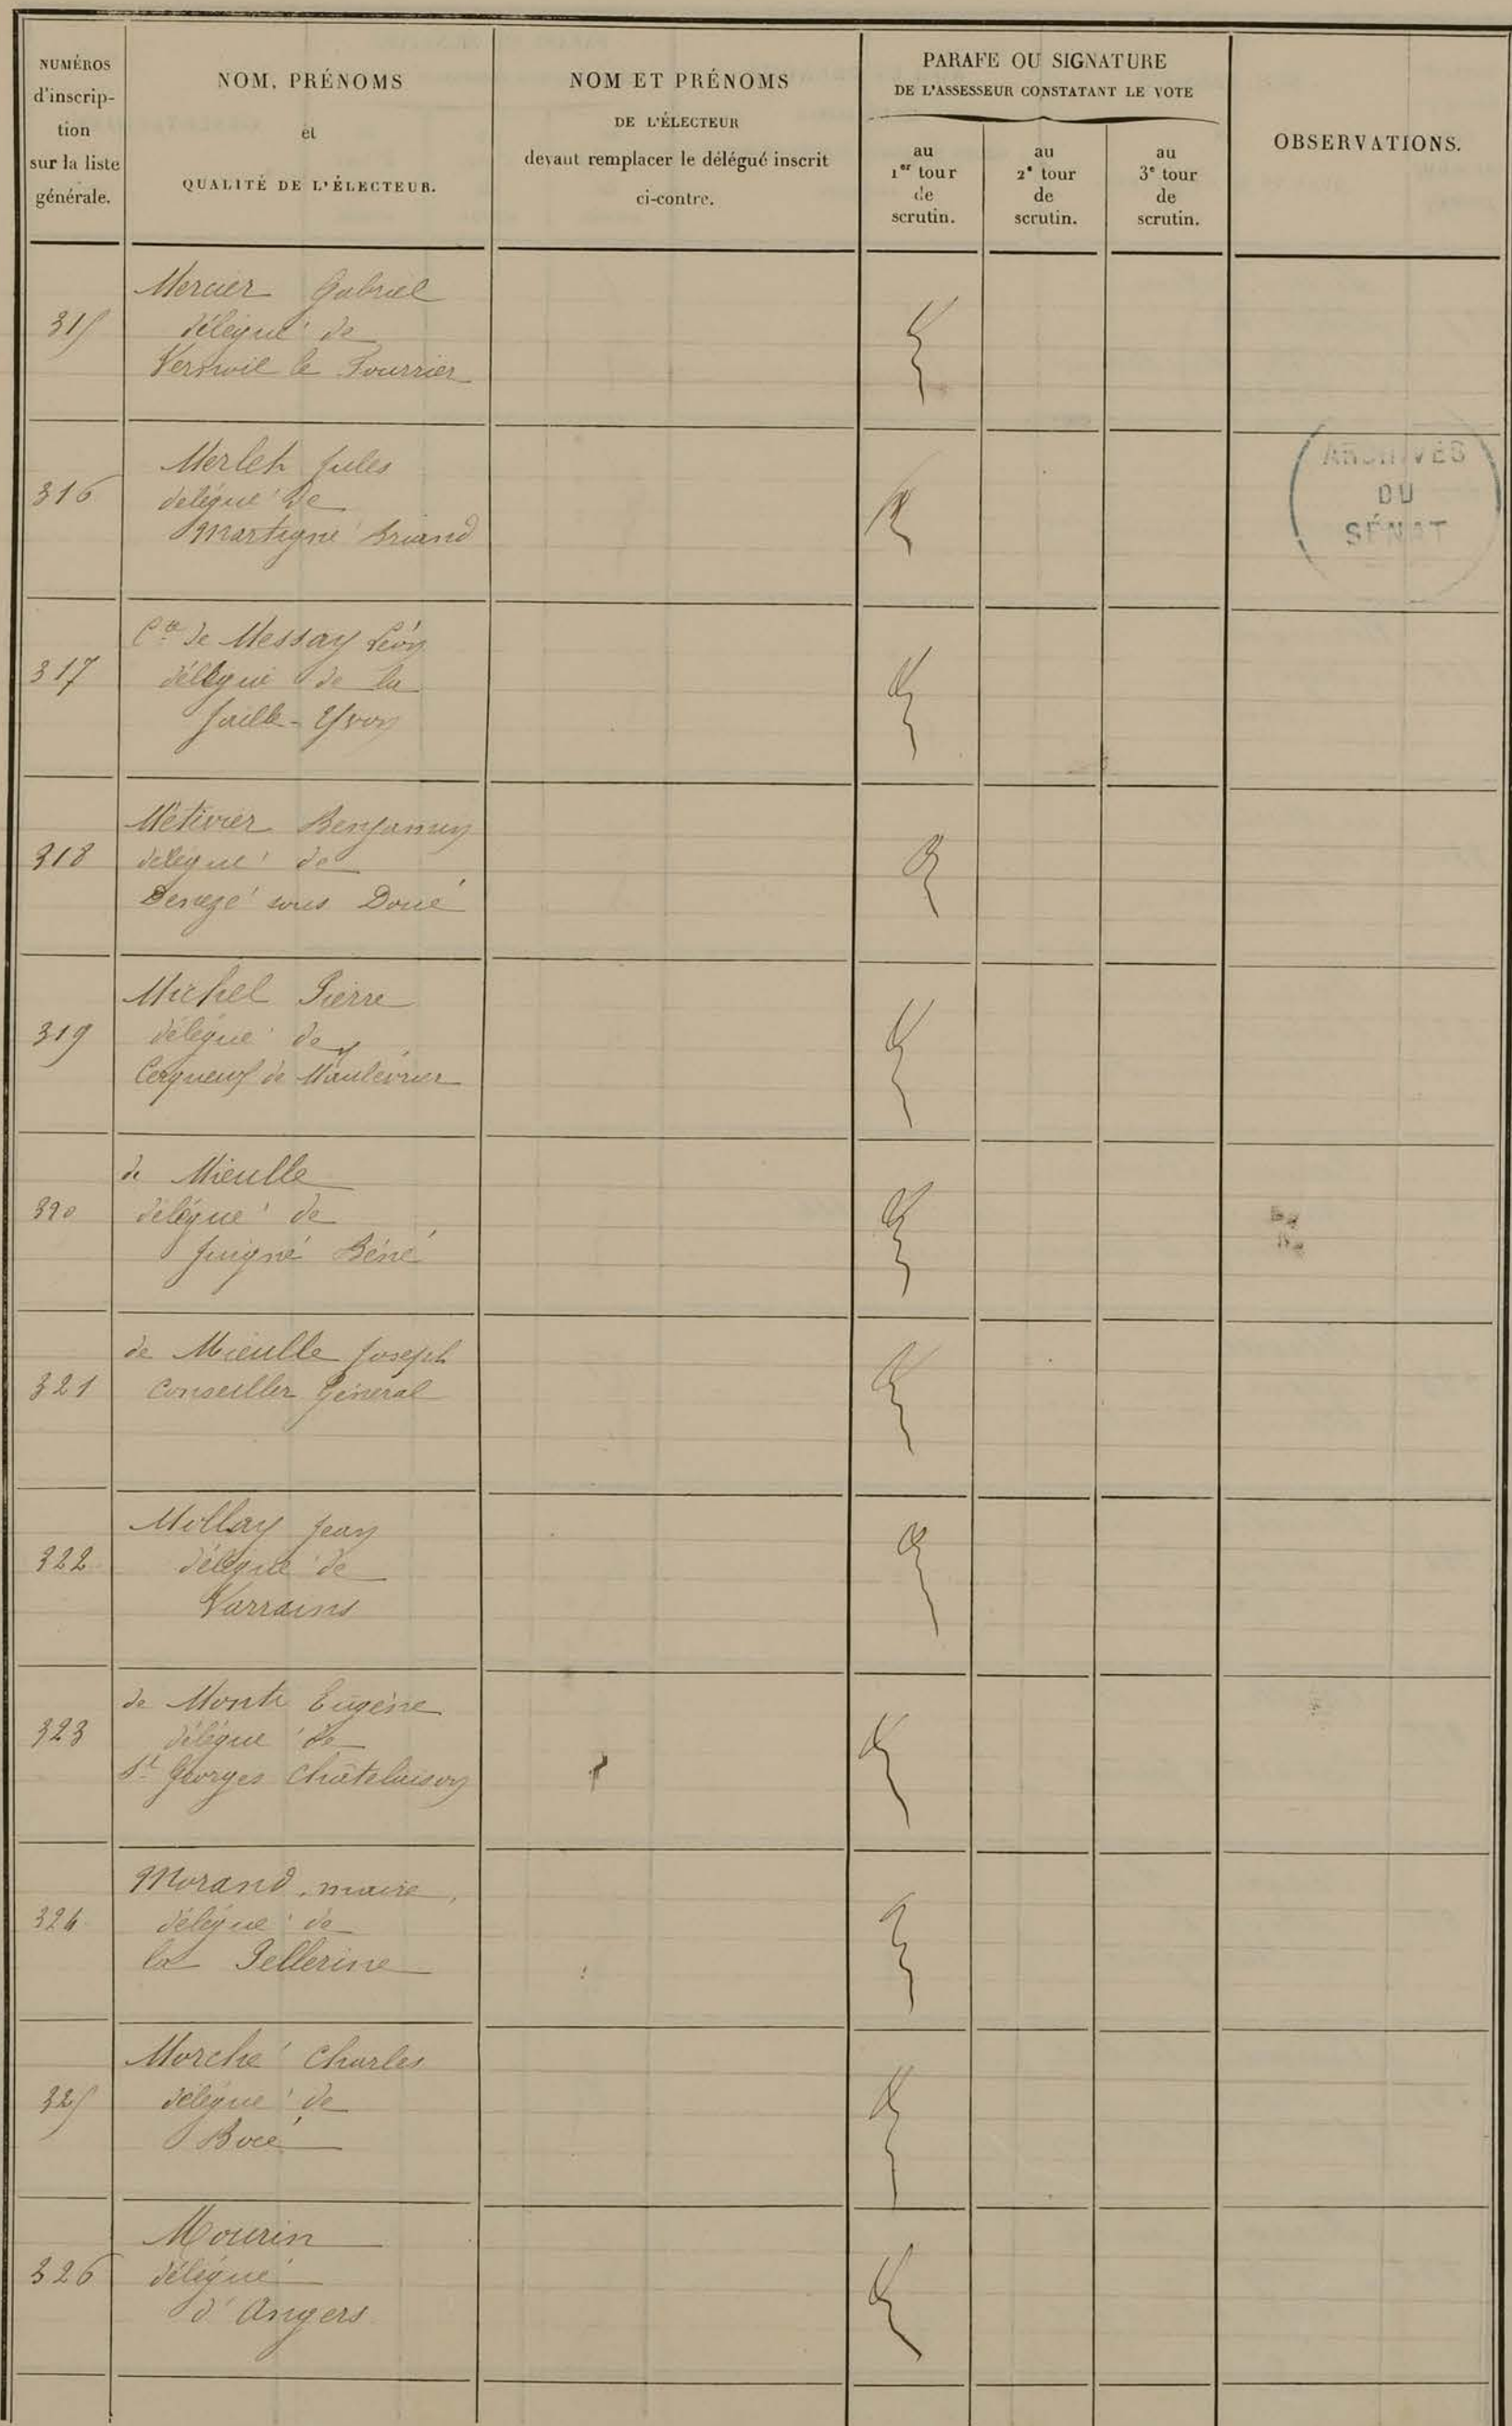 NUMÉROS
d'inscrip-
tion
sur la liste
générale.
NOM, PRÉNOMS
et
QUALITÉ DE L'ÉLECTEUR.
NOM ET PRÉNOMS
DE L'ÉLECTEUR
devant remplacer le délégué inscrit
ci-contre.
PARAFE OU SIGNATURE
DE L'ASSESSEUR CONSTATANT LE VOTE
au
1er tour
de
scrutin.
au
2e tour
de
scrutin.
au
3e tour
de
scrutin.
OBSERVATIONS.
315
Mercier Gabriel
délégué de
Vernoil le Fourrier
316
Merlet Jules
délégué de
Martigné Briand
ARCHIVES
DU
SÉNAT
317
Cte de Messay Léon
délégué de la
Jaille-Yvon
318
Métivier Benjamin
délégué de
Denezé sous Doué
319
Michel Pierre
délégué de
Cerqueux de Maulévrier
320
de Mieulle
délégué de
Juigné Béné
321
de Mieulle Joseph
Conseiller Général
322
Mollay Jean
délégué de
Varrains
323
de Monti Eugène
délégué de
St Georges Châtelaison
324
Morand, maire,
délégué de
la Pellerine
325
Morché Charles
délégué de
Bocé
326
Mourin
délégué
d'Angers